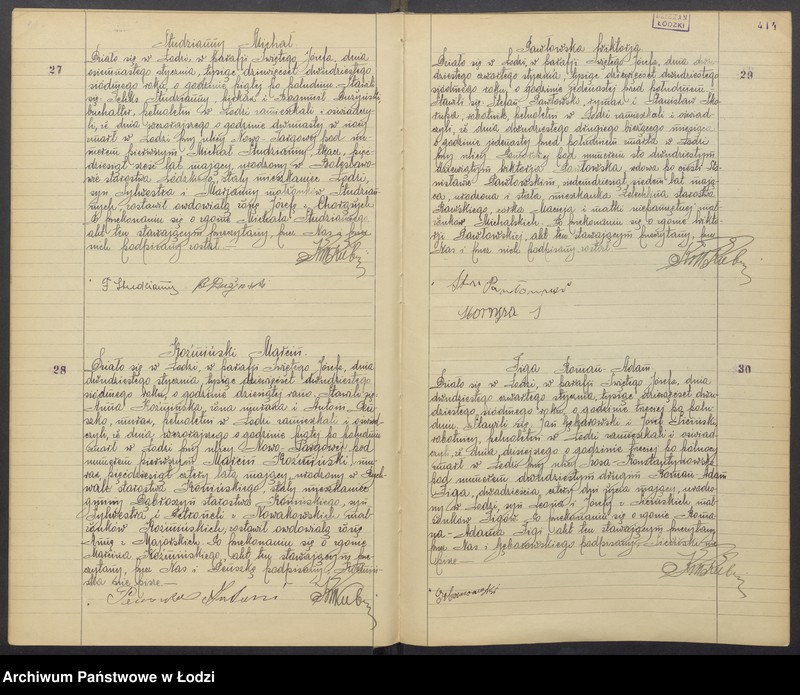 414
27
Studzianny Michał
Działo się w Łodzi, w parafji Świętego Józefa, dnia
osiemnastego stycznia, tysiąc dziewięćset dwudziestego
siódmego roku, o godzinie piątej po południu. Stawili
się, Feliks Studzianny, piekarz i
buchalter, pełnoletni w Łodzi zamieszkali i oświadczy-
li, iż dnia wczorajszego o godzinie dwunastej w nocy
umarł w Łodzi przy ulicy Nowo-Targowej pod nu-
merem pierwszym, Michał Studzianny, tkacz, pięć-
dziesiąt sześć lat mający, urodzony w
starostwa Łódzkiego, stały mieszkaniec Łodzi,
syn Sylwestra i Marjanny małżonków Studzian-
nych, zostawił owdowiałą żonę Józefę z
Po przekonaniu się o zgonie Michała Studziannego,
akt ten stawającym przeczytany, przez Nas i przez
nich podpisany został.
F Studzianny
28
Koźmiński Marcin.
Działo się w Łodzi, w parafji Świętego Józefa, dnia
dwudziestego stycznia, tysiąc dziewięćset dwudziestego
siódmego roku, o godzinie dziesiątej rano. Stawili się:
Anna Koźmińska, żona murarza i Antoni
murarz, pełnoletni w Łodzi zamieszkali i oświad-
czyli, iż dnia wczorajszego o godzinie piątej po południu
umarł w Łodzi przy ulicy Nowo-Targowej pod
numerem pierwszym Marcin Koźmiński, mu-
rarz, pięćdziesiąt cztery lata mający, urodzony w
starostwa Konińskiego, stały mieszkaniec
gminy Dąbroszyn starostwa Konińskiego, syn
Sylwestra i Petroneli z Nowakowskich mał-
żonków Koźmińskich, zostawił owdowiałą żonę
Annę z Majewskich. Po przekonaniu się o zgonie
Marcina Koźmińskiego, akt ten stawającym prze-
czytany, przez Nas i podpisany, Koźmiń-
ska nie pisze.
Antoni
29
Pawłowska Wiktorja
Działo się w Łodzi, w parafji Świętego Józefa, dnia dwu-
dziestego czwartego stycznia, tysiąc dziewięćset dwudziestego
siódmego roku, o godzinie jedenastej przed południem.
Stawili się: Stefan Pawłowski, rymarz i Stanisław Sko-
rupa, robotnik, pełnoletni w Łodzi zamieszkali i oświad-
czyli, iż dnia dwudziestego drugiego bieżącego miesiąca
o godzinie jedenastej przed południem umarła w Łodzi
przy ulicy pod numerem sto dwudziestym
dziewiątym Wiktorja Pawłowska, wdowa po Sta-
nisławie Pawłowskim, siedemdziesiąt siedem lat mają-
ca, urodzona i stała mieszkanka starostwa
Rawskiego, córka Macieja i matki niepamiętnej mał-
żonków Michalskich. Po przekonaniu się o zgonie Wikto-
rji Pawłowskiej, akt ten stawającym przeczytany, przez
Nas i przez nich podpisany został.
30
Figa Roman-Adam
Działo się w Łodzi, w parafji Świętego Józefa, dnia
dwudziestego czwartego stycznia, tysiąc dziewięćset dwu-
dziestego siódmego roku, o godzinie trzeciej po połu-
dniu. Stawili się, Jan i Józef
robotnicy, pełnoletni w Łodzi zamieszkali i oświad-
czyli, iż dnia dzisiejszego o godzinie trzeciej po północy
umarł w Łodzi przy ulicy Szosa-Konstantynowska
pod numerem dwudziestym drugim Roman-Adam
Figa, dwadzieścia cztery dni życia mający, urodzo-
ny w Łodzi, syn i Józefy z mał-
żonków Figów. Po przekonaniu się o zgonie Roma-
na-Adama Figi akt ten stawającym przeczytany,
przez Nas i podpisany, nie
pisze.
Archiwum Państwowe w Łodzi